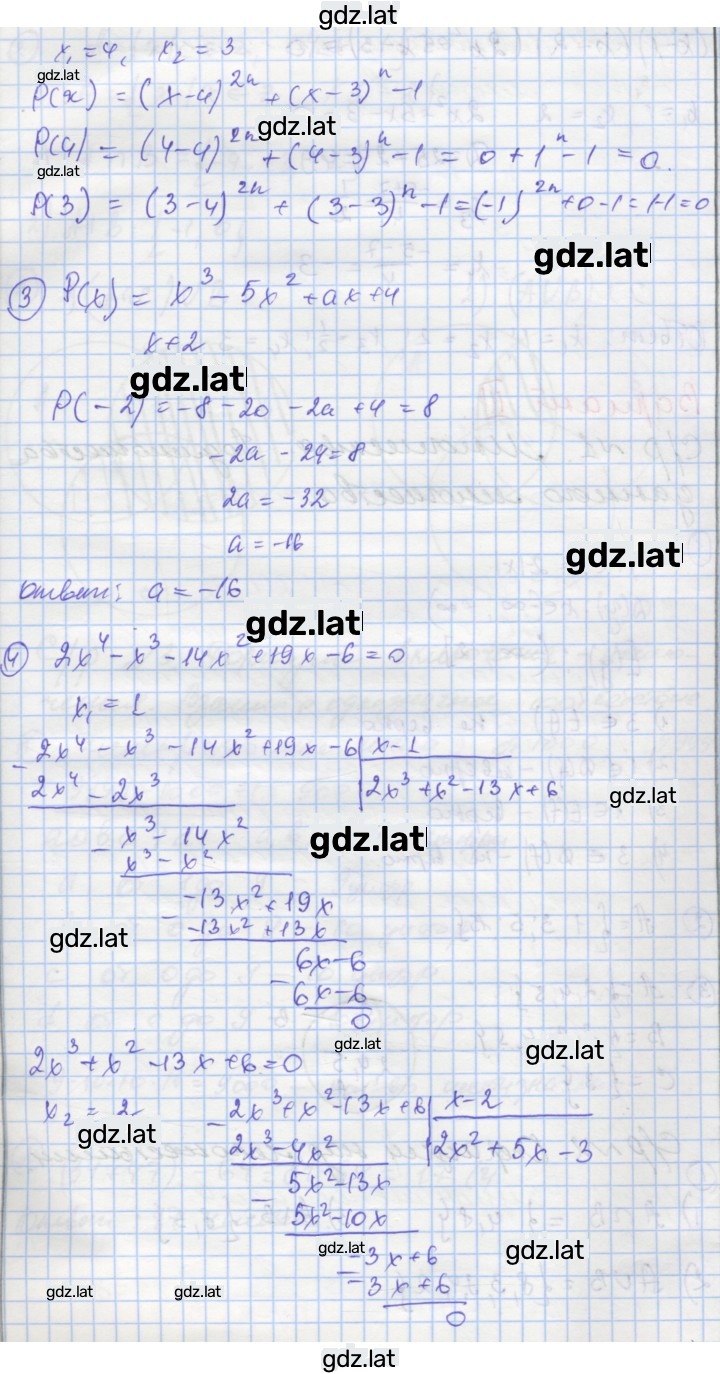 gdz.lat
x₁ = 4, x₂ = 3
gdz.lat
P(x) = (x-4)²ⁿ + (x-3)ⁿ - 1
gdz.lat
P(4) = (4-4)²ⁿ + (4-3)ⁿ - 1 = 0 + 1ⁿ - 1 = 0.
gdz.lat
P(3) = (3-4)²ⁿ + (3-3)ⁿ - 1 = (-1)²ⁿ + 0 - 1 = 1-1 = 0
gdz.lat
③ P(x) = x³ - 5x² + ax + 4
x+2
gdz.lat
P(-2) = -8 - 20 - 2a + 4 = 8
-2a - 24 = 8
2a = -32
a = -16
gdz.lat
Ответ: a = -16
gdz.lat
④ 2x⁴ - x³ - 14x² + 19x - 6 = 0
x₁ = 1
- 2x⁴ - x³ - 14x² + 19x - 6 | x-1
2x⁴ - 2x³ | 2x³ + x² - 13x + 6
gdz.lat
- x³ - 14x²
gdz.lat
x³ - x²
- -13x² + 19x
-13x² + 13x
gdz.lat
6x - 6
- 6x - 6
0
gdz.lat
gdz.lat
2x³ + x² - 13x + 6 = 0
x₂ = 2
- 2x³ + x² - 13x + 6 | x-2
gdz.lat
2x³ - 4x² | 2x² + 5x - 3
- 5x² - 13x
5x² - 10x
gdz.lat
gdz.lat
- -3x + 6
-3x + 6
gdz.lat
gdz.lat
0
gdz.lat